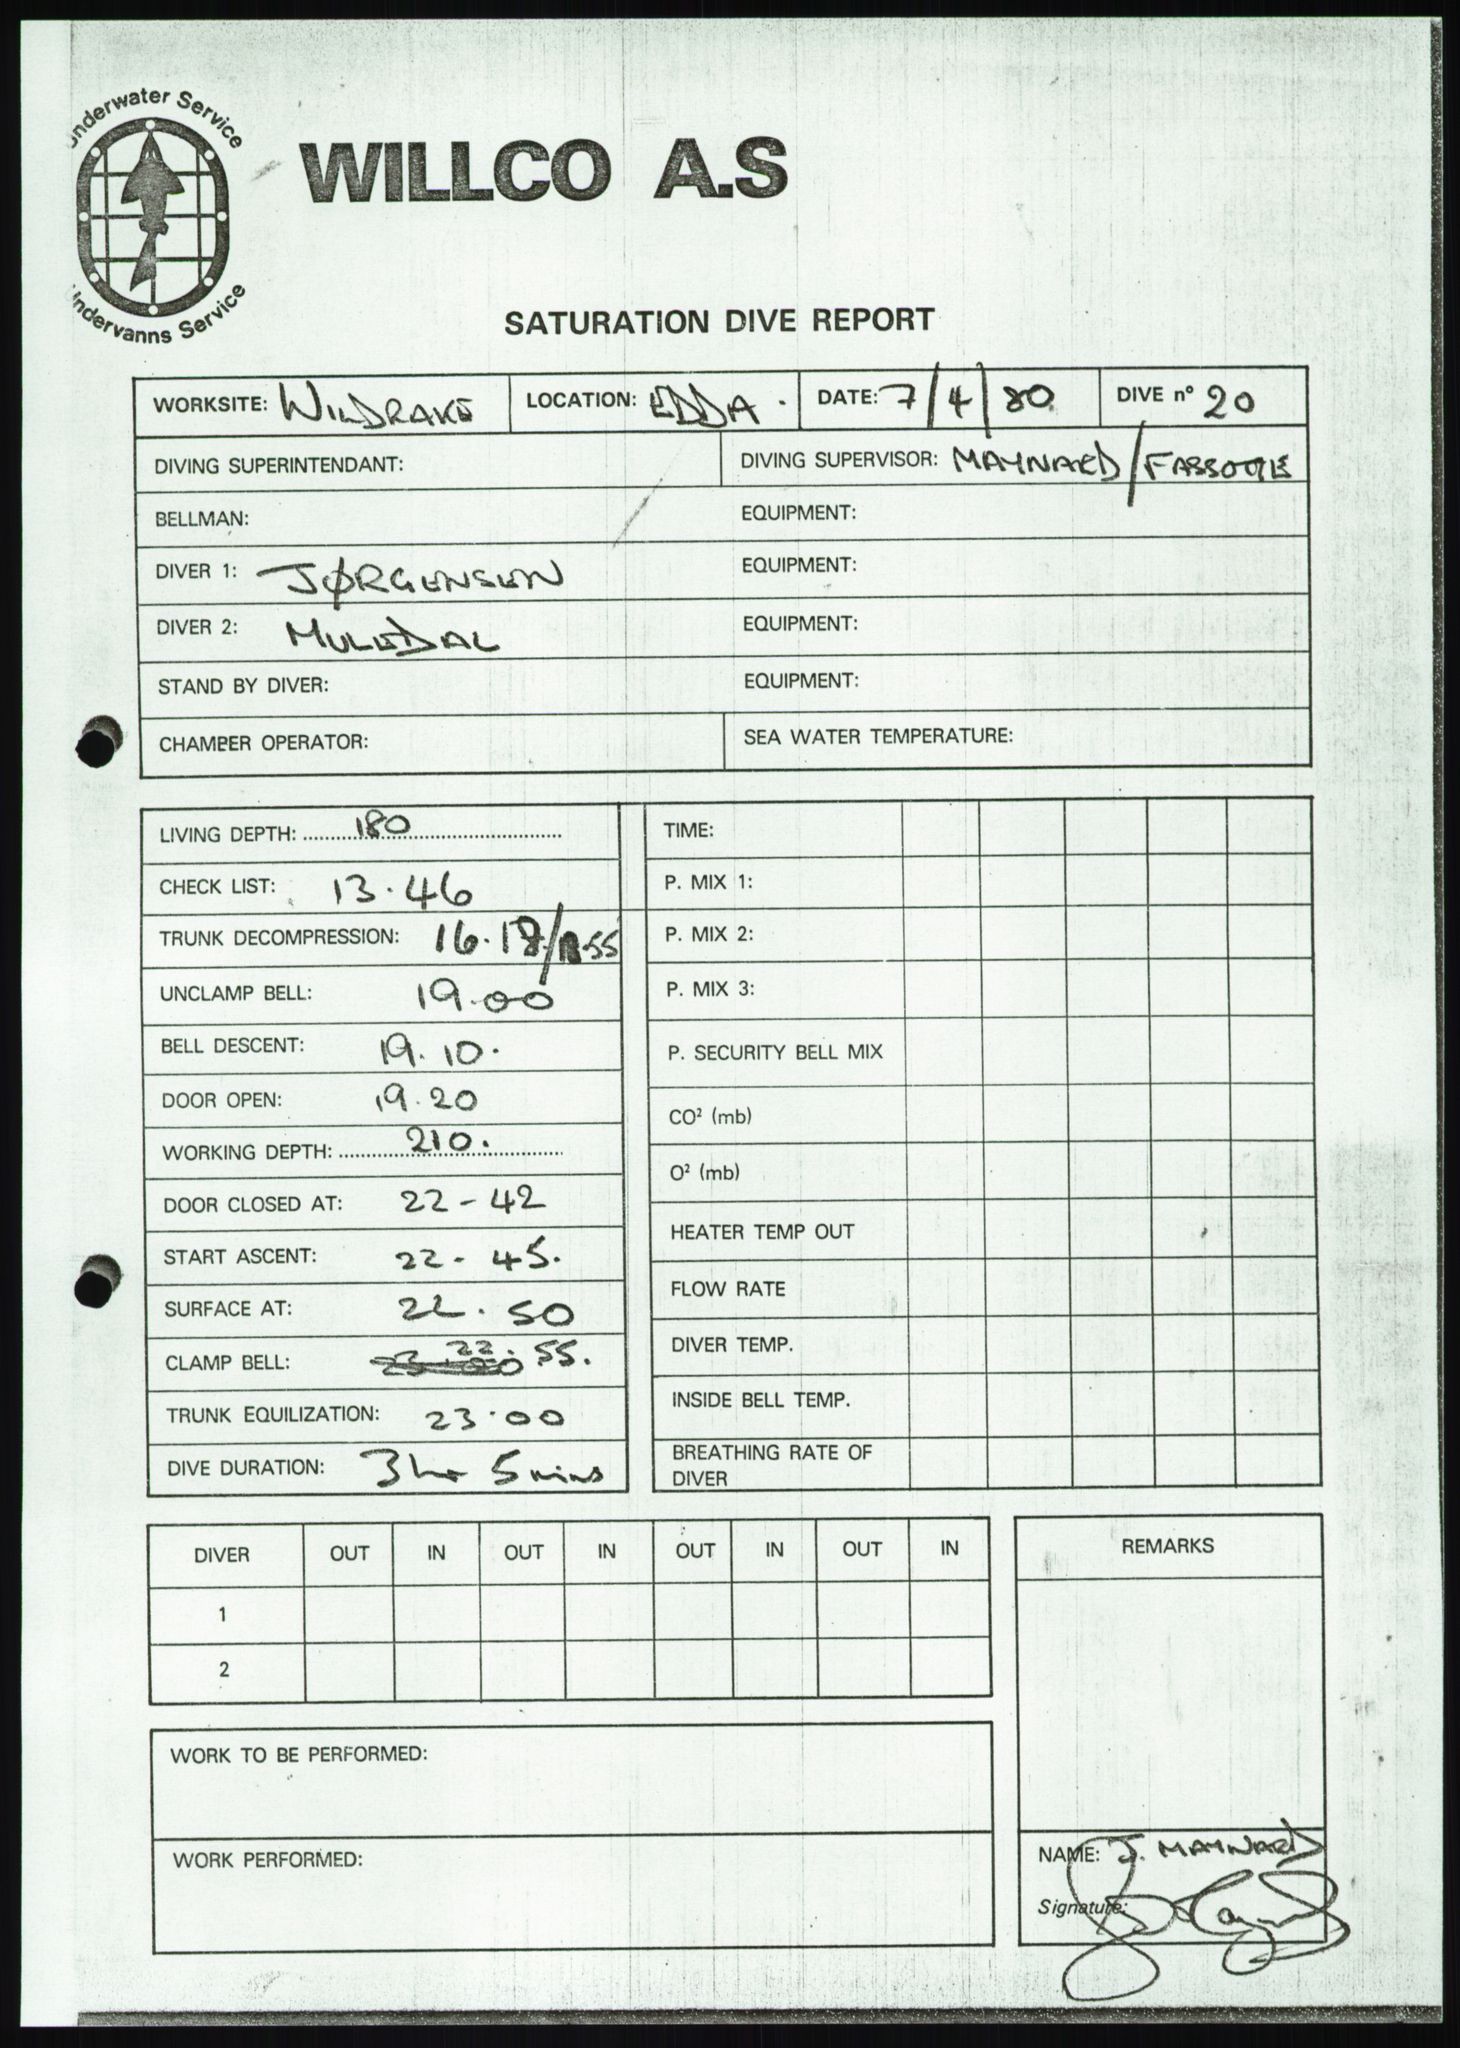 Underwater Service
WILLCO A.S
Undervanns Service
SATURATION DIVE REPORT
WORKSITE: WILDRAKE LOCATION: EDDA. DATE: 7/4/80 DIVE n° 20
DIVING SUPERINTENDANT: DIVING SUPERVISOR: MAYNARD/
BELLMAN: EQUIPMENT:
DIVER 1: JØRGENSEN EQUIPMENT:
DIVER 2: MULEDAL EQUIPMENT:
STAND BY DIVER: EQUIPMENT:
CHAMBER OPERATOR: SEA WATER TEMPERATURE:
LIVING DEPTH: 180
CHECK LIST: 13.46
TRUNK DECOMPRESSION:
UNCLAMP BELL: 19.00
BELL DESCENT: 19.10.
DOOR OPEN: 19.20
WORKING DEPTH: 210.
DOOR CLOSED AT: 22-42
START ASCENT: 22-45.
SURFACE AT: 22.50
CLAMP BELL: 22.55.
TRUNK EQUILIZATION: 23.00
DIVE DURATION: 3 hr 5 mins
TIME:
P. MIX 1:
P. MIX 2:
P. MIX 3:
P. SECURITY BELL MIX
CO² (mb)
O² (mb)
HEATER TEMP OUT
FLOW RATE
DIVER TEMP.
INSIDE BELL TEMP.
BREATHING RATE OF
DIVER
DIVER OUT IN OUT IN OUT IN OUT IN
1
2
WORK TO BE PERFORMED:
WORK PERFORMED:
REMARKS
NAME: J. MAYNARD
Signature: